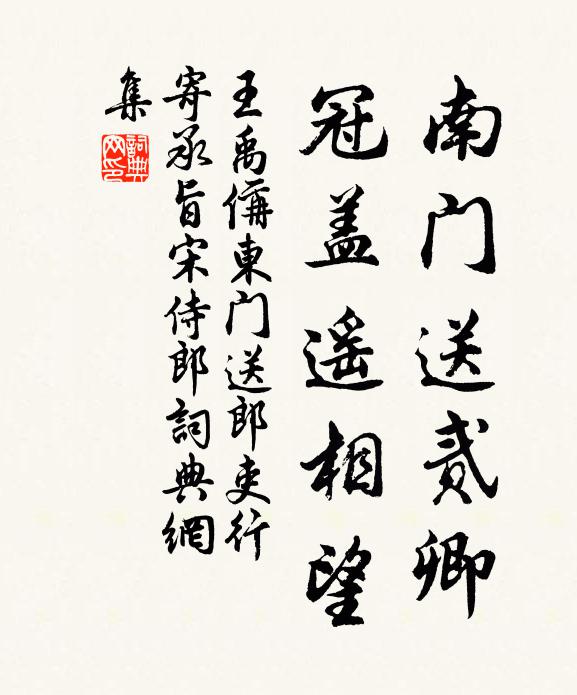 南门送贰卿
冠盖遥相望
王禹偁東门送郎吏行
寄承旨宋侍郎詞典網
集
詞典网印